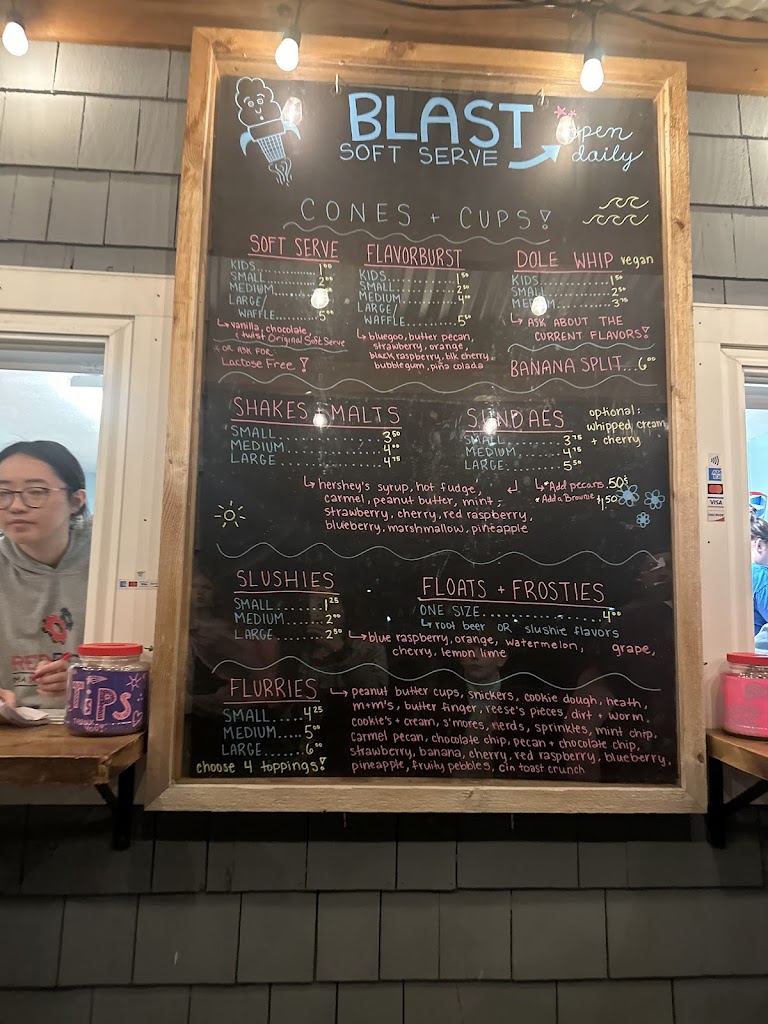 BLAST
SOFT SERVE
open
daily
CONES + CUPS!
SOFT SERVE
KIDS............1⁰⁰
SMALL..........2⁰⁰
MEDIUM
LARGE/
WAFFLE.....5⁰⁰
vanilla, chocolate,
twist Original Soft Serve
* OR ASK FOR
Lactose Free!
FLAVORBURST
KIDS..............1⁵⁰
SMALL...........2⁵⁰
MEDIUM........4⁰⁰
LARGE/
WAFFLE.......5⁵⁰
bluegoo, butter pecan,
strawberry, orange,
black raspberry, blk cherry
bubblegum, piña colada
DOLE WHIP vegan
KIDS..............1⁵⁰
SMALL..........2⁵⁰
MEDIUM.......3⁷⁵
ASK ABOUT THE
CURRENT FLAVORS!
BANANA SPLIT...6⁰⁰
SHAKES + MALTS
SMALL...............3⁵⁰
MEDIUM............4⁰⁰
LARGE...............4⁷⁵
SUNDAES
SMALL............3⁷⁵
MEDIUM.........4⁷⁵
LARGE............5⁵⁰
optional:
whipped cream
+ cherry
*Add pecans .50¢
*Add a Brownie $1.50
hershey's syrup, hot fudge,
carmel, peanut butter, mint,
strawberry, cherry, red raspberry,
blueberry, marshmallow, pineapple
SLUSHIES
SMALL.......1²⁵
MEDIUM.....2⁰⁰
LARGE........2⁵⁰
FLOATS + FROSTIES
ONE SIZE................4⁰⁰
root beer OR slushie flavors
blue raspberry, orange, watermelon, grape,
cherry, lemon lime
FLURRIES
SMALL.....4²⁵
MEDIUM.....5⁰⁰
LARGE......6⁰⁰
choose 4 toppings!
peanut butter cups, snickers, cookie dough, heath,
m+m's, butter finger, reese's pieces, dirt + worm,
cookie's + cream, s'mores, nerds, sprinkles, mint chip,
carmel pecan, chocolate chip, pecan + chocolate chip,
strawberry, banana, cherry, red raspberry, blueberry,
pineapple, fruity pebbles, cin toast crunch
TIPS
VISA